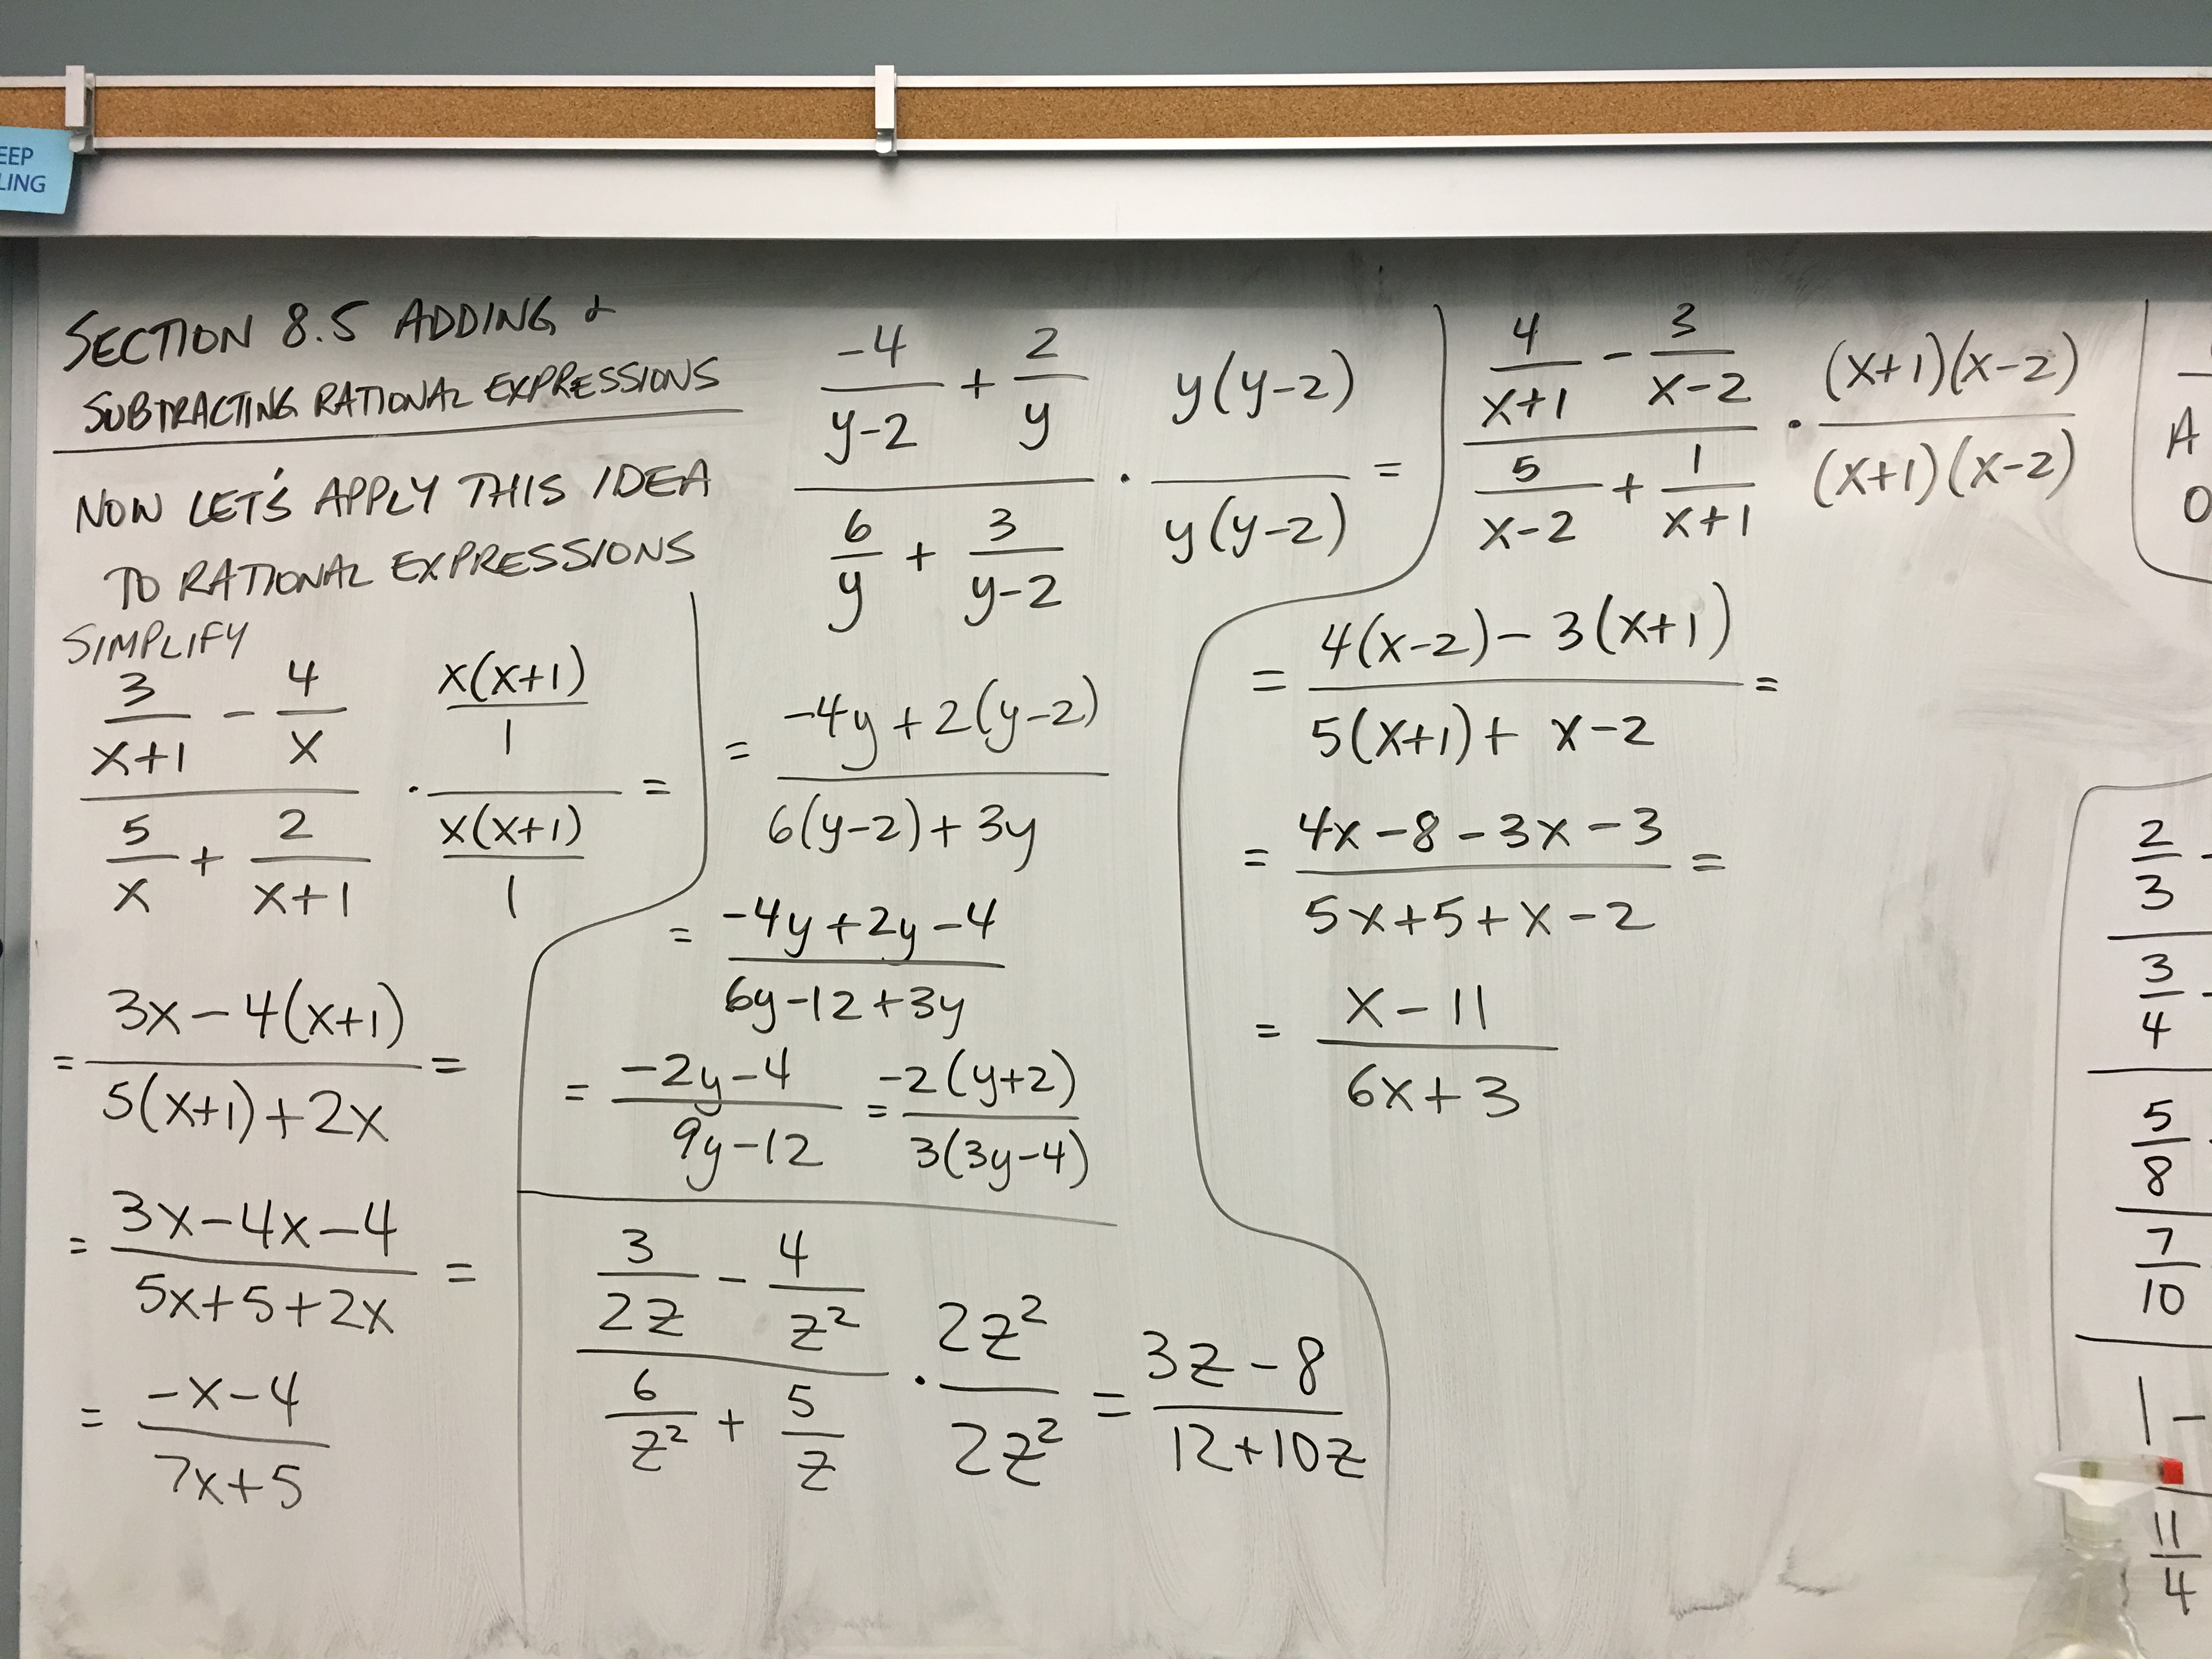 EEP
LING
SECTION 8.5 ADDING &
SUBTRACTING RATIONAL EXPRESSIONS
NOW LET'S APPLY THIS IDEA
TO RATIONAL EXPRESSIONS
SIMPLIFY
3/(x+1) - 4/x · x(x+1)/1
5/x + 2/(x+1) x(x+1)/1 =
= (3x - 4(x+1))/(5(x+1) + 2x) =
= (3x - 4x - 4)/(5x + 5 + 2x) =
= (-x - 4)/(7x + 5)
-4/(y-2) + 2/y · y(y-2)
6/y + 3/(y-2) y(y-2) =
= (-4y + 2(y-2))/(6(y-2) + 3y)
= (-4y + 2y - 4)/(6y - 12 + 3y)
= (-2y - 4)/(9y - 12) = -2(y+2)/3(3y-4)
3/2z - 4/z² · 2z²
6/z² + 5/z 2z² = (3z - 8)/(12 + 10z)
4/(x+1) - 3/(x-2) · (x+1)(x-2)
5/(x-2) + 1/(x+1) (x+1)(x-2)
= (4(x-2) - 3(x+1))/(5(x+1) + x-2) =
= (4x - 8 - 3x - 3)/(5x + 5 + x - 2) =
= (x - 11)/(6x + 3)
A
O
2/3 -
3/4 -
5/8
7/10
1 -
11/4